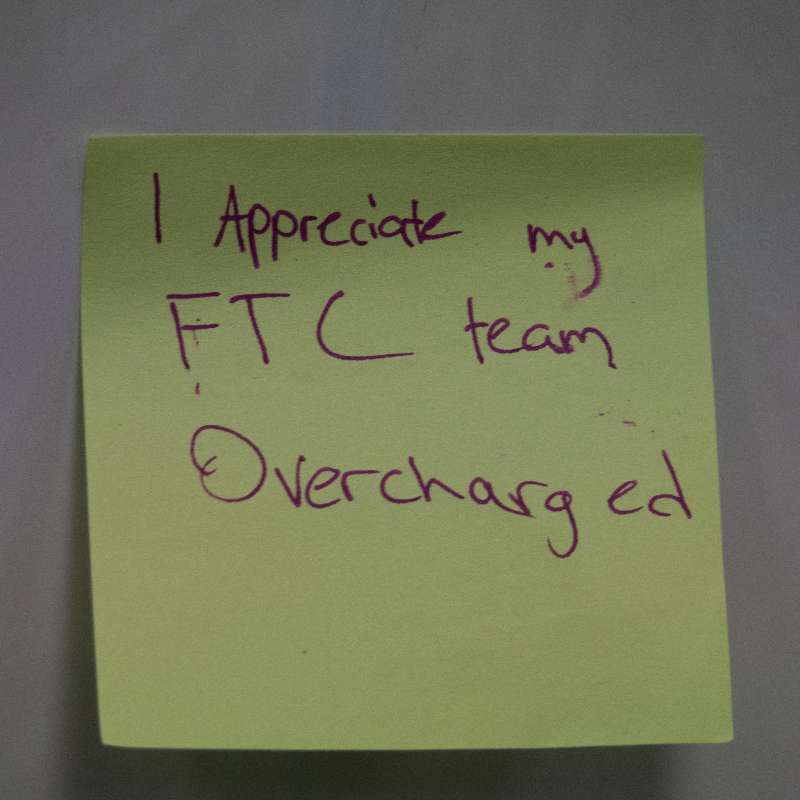 I Appreciate my
FTC team
Overcharged